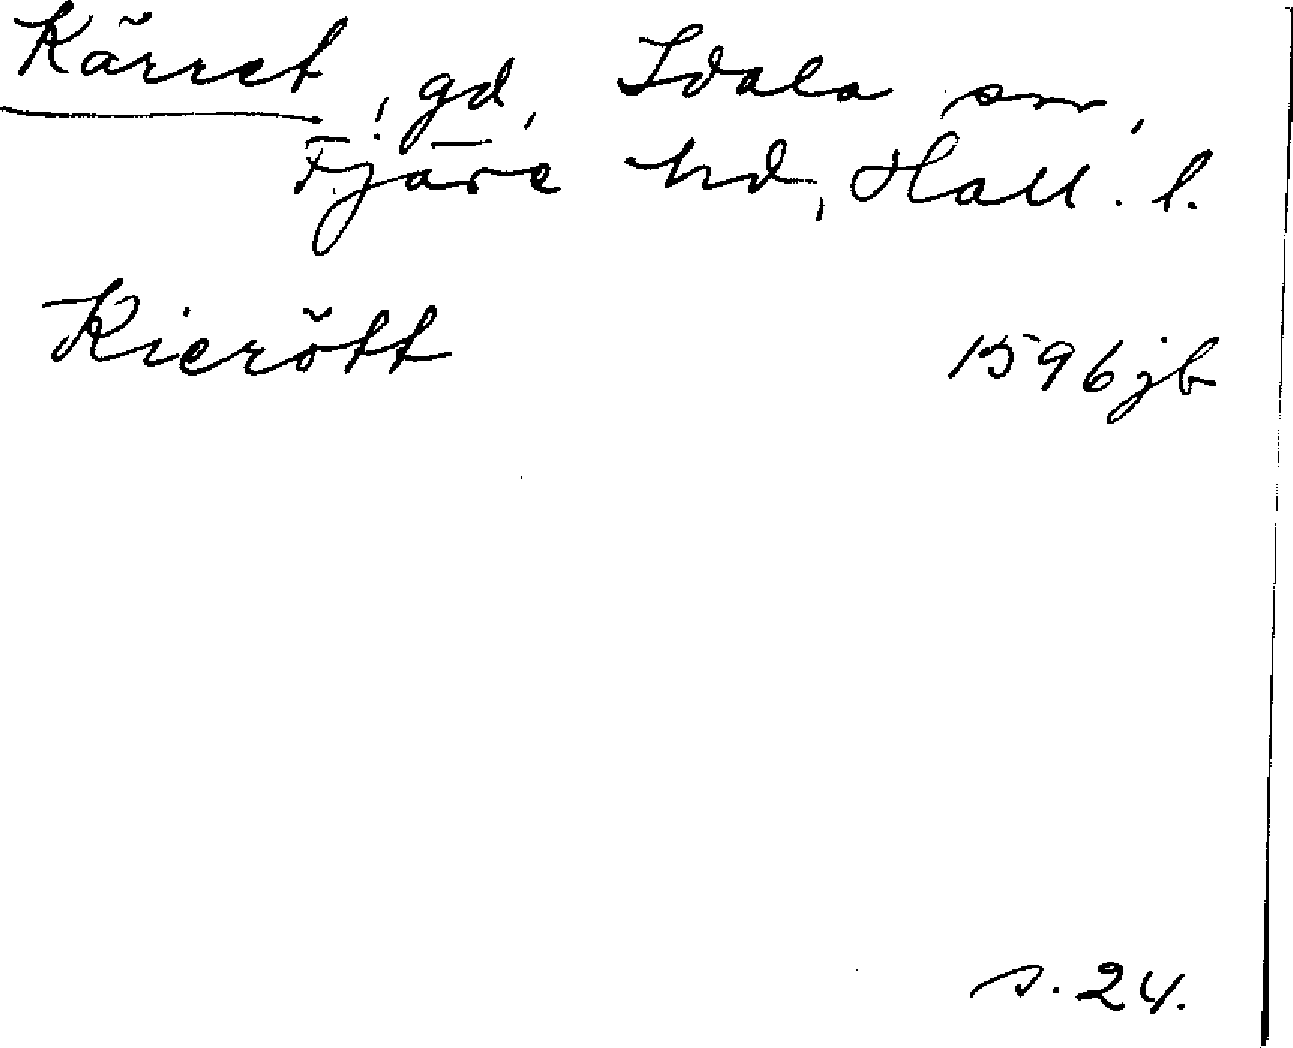 Kärret, gd, Idala sn,
Fjäre hd, Hall. l.
Kierött 1596 jb
s. 24.